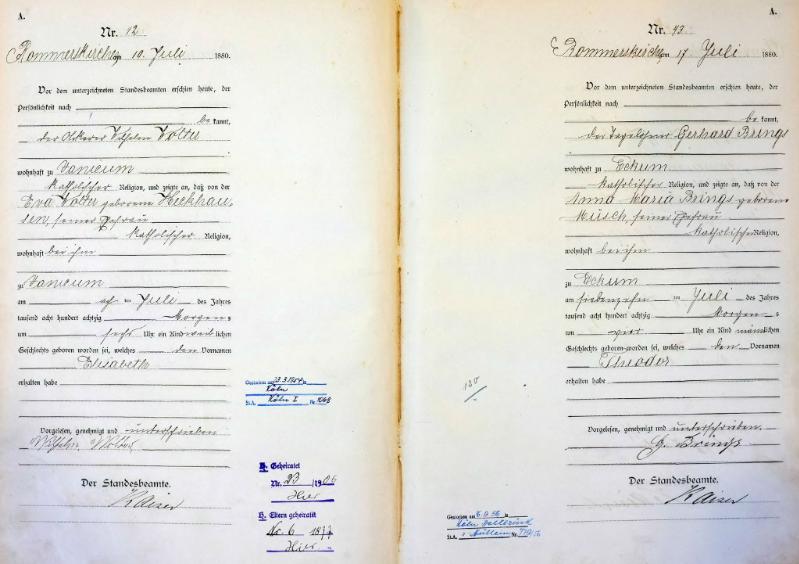 A.
Nr. 42
Rommerskirchen am 10. Juli 1880.
Vor dem unterzeichneten Standesbeamten erschien heute, der
Persönlichkeit nach
be kannt,
der Wilhelm Wolter
wohnhaft zu Vanicum
katholischer Religion, und zeigte an, daß von der
Eva Wolter geborene Heckhau-
sen, seiner Ehefrau
katholischer Religion,
wohnhaft bei ihm
zu Vanicum
am ten Juli des Jahres
tausend acht hundert achtzig Morgens
um sechs Uhr ein Kind weiblichen
Geschlechts geboren worden sei, welches den Vornamen
Elisabeth
erhalten habe
Vorgelesen, genehmigt und unterschrieben
Wilhelm Wolter
Der Standesbeamte.
Kaiser
Gestorben am in
Köln
St.A. Köln I Nr.
H. Geheiratet
Nr. 23 /1906
Hier
H. Eltern geheiratet
Nr. 6
Hier
A.
Nr. 43
Rommerskirchen 17 Juli 1880.
Vor dem unterzeichneten Standesbeamten erschien heute, der
Persönlichkeit nach
be kannt,
der Tagelöhner Gerhard Brings
wohnhaft zu Eckum
katholischer Religion, und zeigte an, daß von der
Anna Maria Brings geborene
Müsch, seiner Ehefrau
katholischer Religion,
wohnhaft bei ihm
zu Eckum
am siebenzehn ten Juli des Jahres
tausend acht hundert achtzig Morgens
um vier Uhr ein Kind männlichen
Geschlechts geboren worden sei, welches den Vornamen
Theodor
erhalten habe
Vorgelesen, genehmigt und unterschrieben.
G. Brings
Der Standesbeamte.
Kaiser
Gestorben am in
Köln
St.A. Nr.